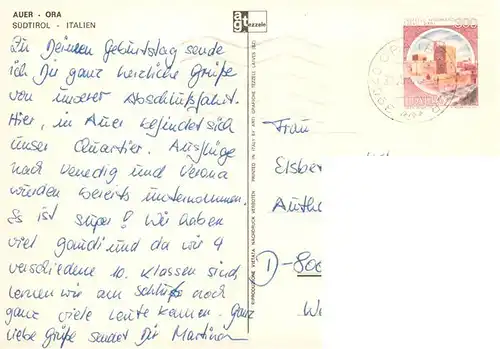 AUER · ORA
SÜDTIROL - ITALIEN
Zu Deinem Geburtstag sende
ich Dir ganz herzliche Grüße
von unserer Abschlußfahrt.
Hier, in Auer befindet sich
unser Quartier. Ausflüge
nach Venedig und Verona
wurden bereits unternommen.
Es ist super! Wir haben
viel gaudi und da wir 4
verschiedene 10. Klassen sind,
lernen wir am Schluß noch
ganz viele Leute kennen. Ganz
liebe Grüße sendet Dir Martina
RIPRODUZIONE VIETATA NACHDRUCK VERBOTEN PRINTED IN ITALY BY ARTI GRAFICHE TEZZELE LAIVES (BZ)
ag tezzele
Frau
Elsbe
Auth
D-800
300
ITALIA